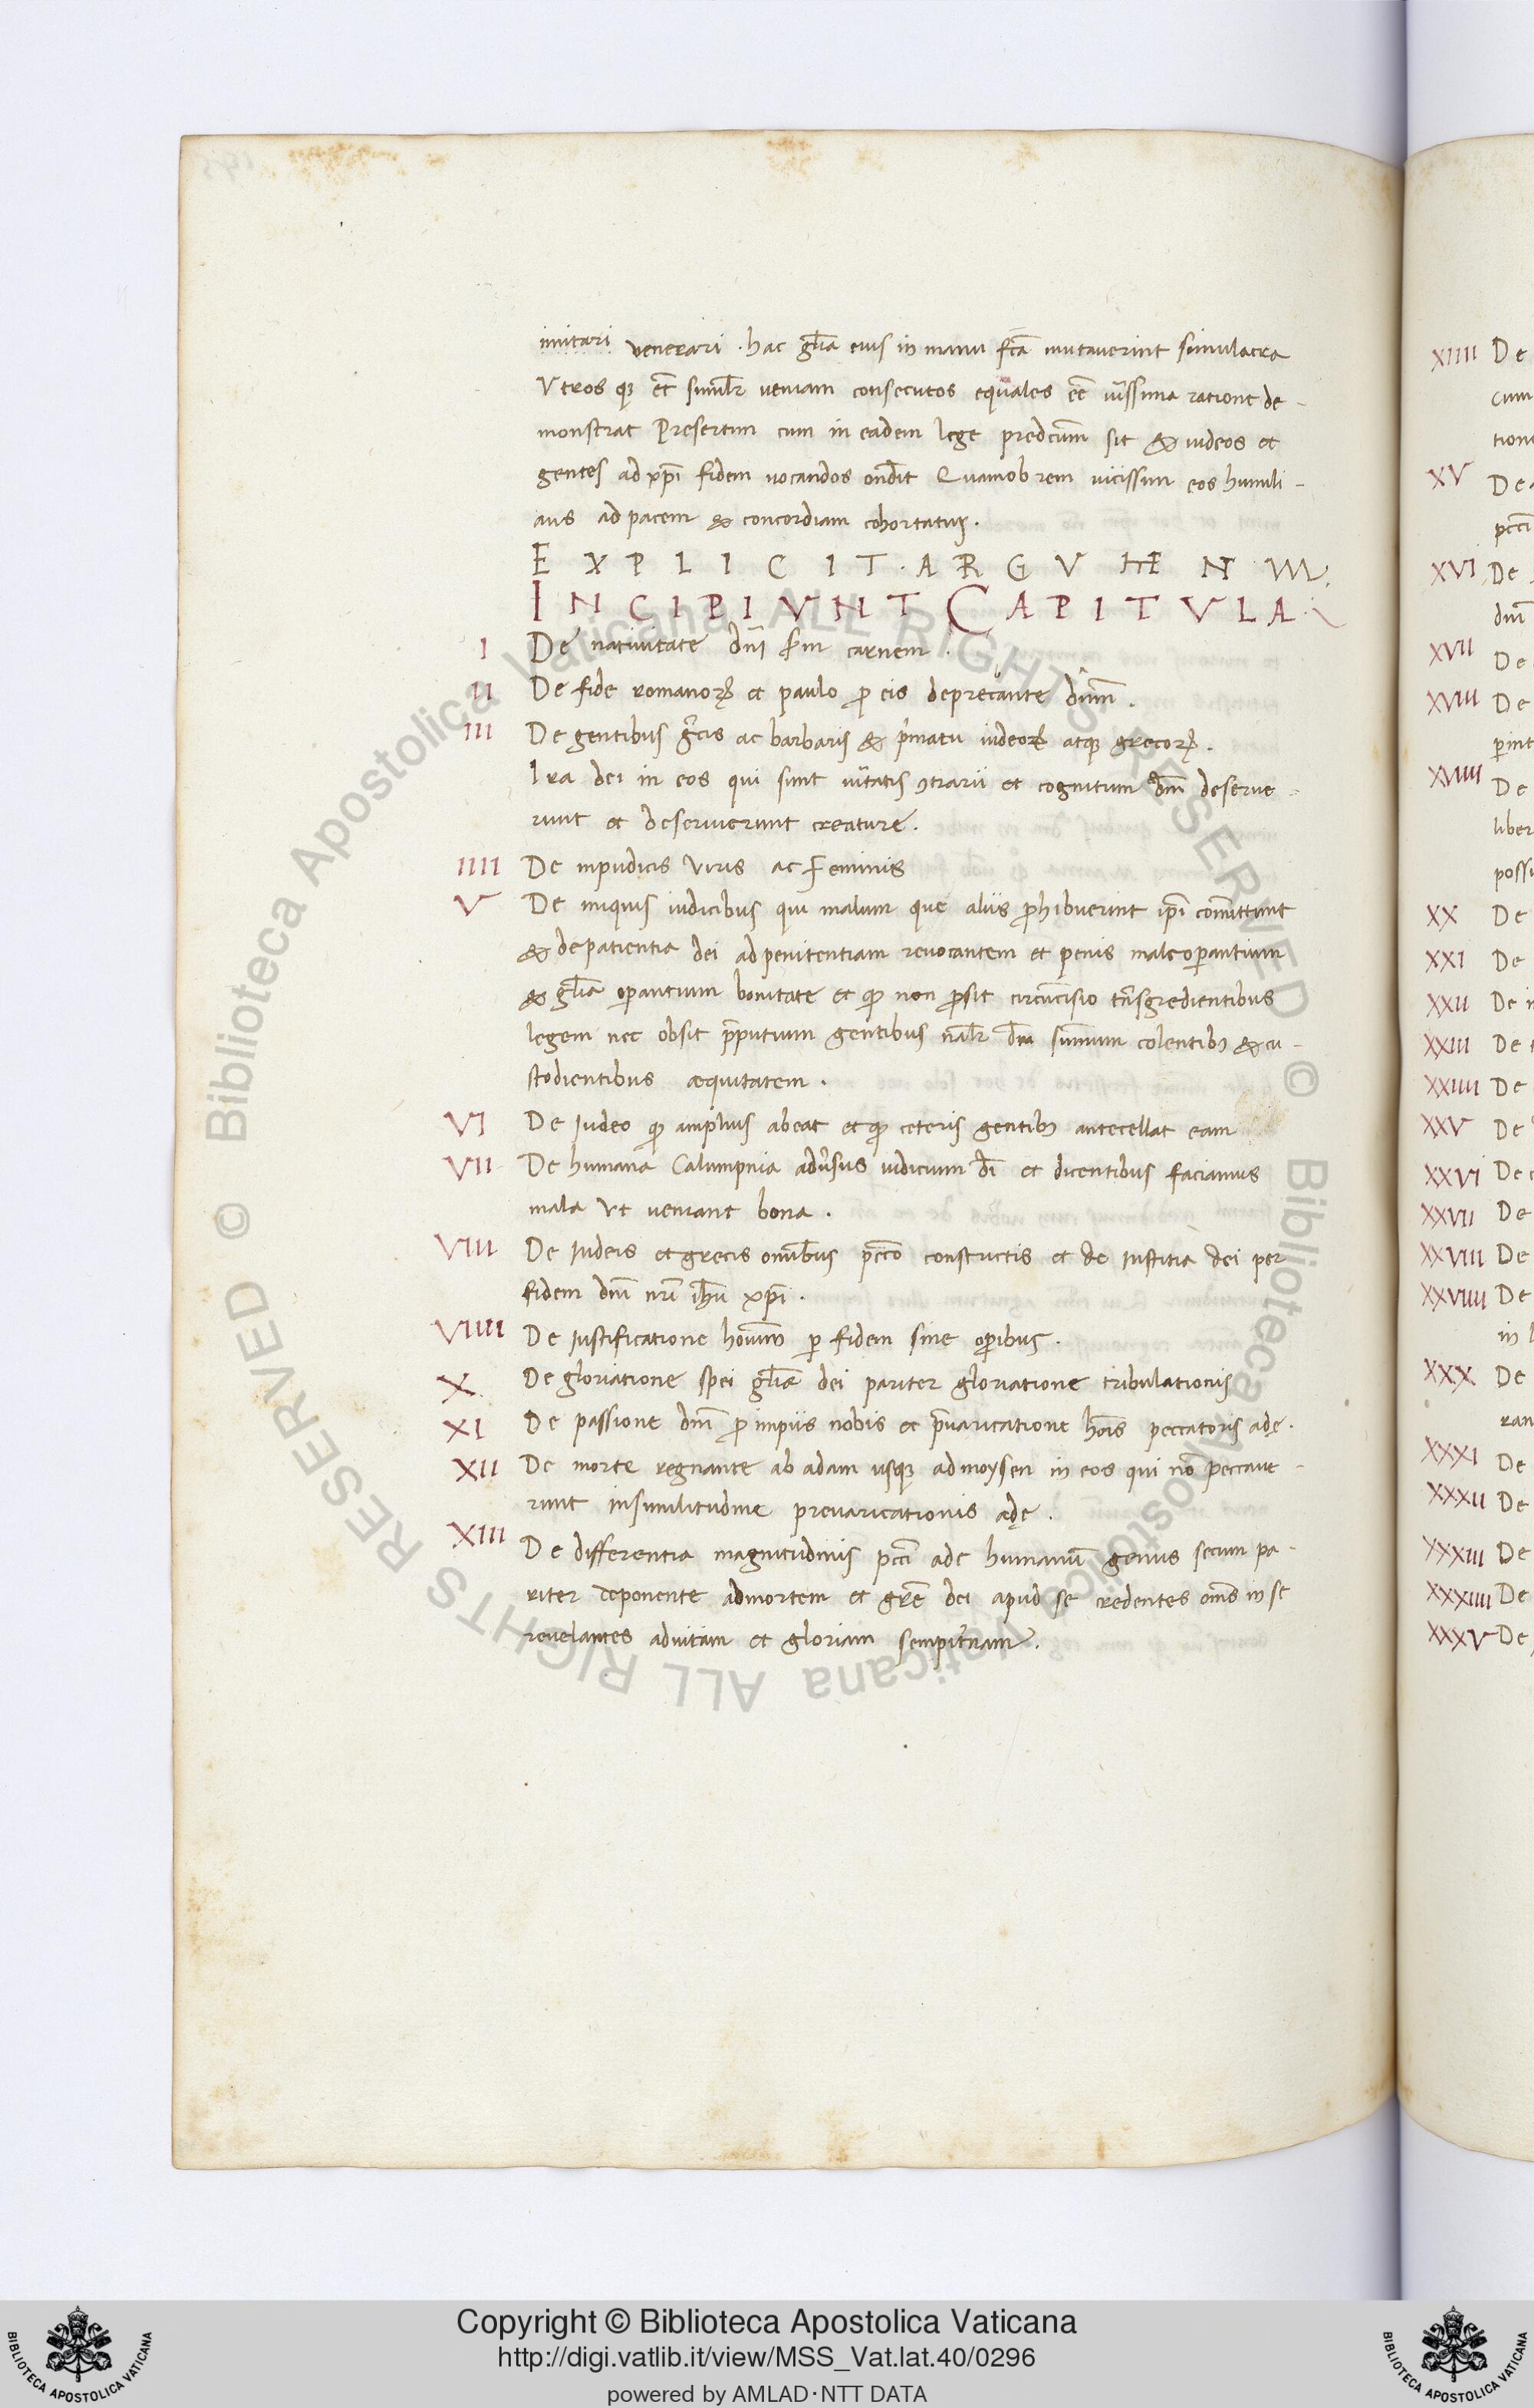 imitari venerari . hac gl̅ia eius in manu fc̅a mutaverint simulacra
Utros q; et̅ simil̅r veniam consecutos equales ee̅ iu̅ssima ratione de-
monstrat Presertim cum in eadem lege predc̅um sit & iudeos et
gentes ad xp̅i fidem vocandos on̅dit Quamobrem vicissim eos humili-
ans ad pacem & concordiam cohortatur.
EXPLICIT · ARGUMEN
INCIPIUNT CAPITULA
I De nativitate dn̅i s̅m carnem .
II De fide romanoꝝ et paulo ꝓ eis deprecante
III De gentibus gr̅cis ac barbaris & p̅matu iudeoꝝ atq; grecoꝝ .
Ira dei in eos qui sunt ve̅tatis ꝯtrarii et cognitum dm̅ deserue-
runt et deseruerunt creature .
IIII De inpudicis viris ac Feminis
V De iniquis iudicibus qui malum que aliis ꝓhibuerint ip̅i com̅ittunt
& de patientia dei ad penitentiam revocantem et penis male oꝑantium
& gl̅ia oꝑantium bonitate et ꝙ non ꝓsit circu̅cisio tn̅sgredientibus
legem nec obsit p̅putium gentibus nal̅r dm̅ sum̅um colentib; & cu-
stodientibus æquitatem .
VI De Iudeo ꝙ amplius abeat et ꝙ ceteris gentib; antecellat eam
VII De humana Calumpnia adv̅sus iudicium di̅ et dicentibus faciamus
mala ut veniant bona .
VIII De Iudeis et grecis omi̅bus pcc̅o constructis et de Iustitia dei per
fidem dn̅i nr̅i ih̅u xp̅i .
VIIII De Iustificatione homi̅m ꝑ fidem sine oꝑibus .
X De gloriatione spei gl̅iæ dei pariter gloriatione tribulationis
XI De passione dn̅i ꝓ impiis nobis et p̅varicatione ho̅is peccatoris adę .
XII De morte regnante ab adam usq; ad moysen in eos qui no̅ peccave-
runt in similitudine prevaricationis adę .
XIII De differentia magnitudinis pcc̅i ade humanu̅ genus secum pa-
riter deponente ad mortem et gr̅e dei apud se credentes om̅s in se
revelantes ad vitam et gloriam sempit̅nam .
XIIII De
cum
tion
XV De
pcc̅i
XVI De
dn̅i
XVII De
XVIII De
ꝑint
XVIIII De
liber
possi
XX De
XXI De
XXII De i
XXIII De
XXIIII De
XXV De
XXVI De
XXVII De
XXVIII De
XXVIIII De
in
XXX De
ran
XXXI De
XXXII De
XXXIII De
XXXIIII De
XXXV De
© Biblioteca Apostolica Vaticana ALL RIGHTS RESERVED © Biblioteca Apostolica Vaticana ALL RIGHTS RESERVED
BIBLIOTECA APOSTOLICA VATICANA
Copyright © Biblioteca Apostolica Vaticana
http://digi.vatlib.it/view/MSS_Vat.lat.40/0296
powered by AMLAD·NTT DATA
BIBLIOTECA APOSTOLICA VATICANA